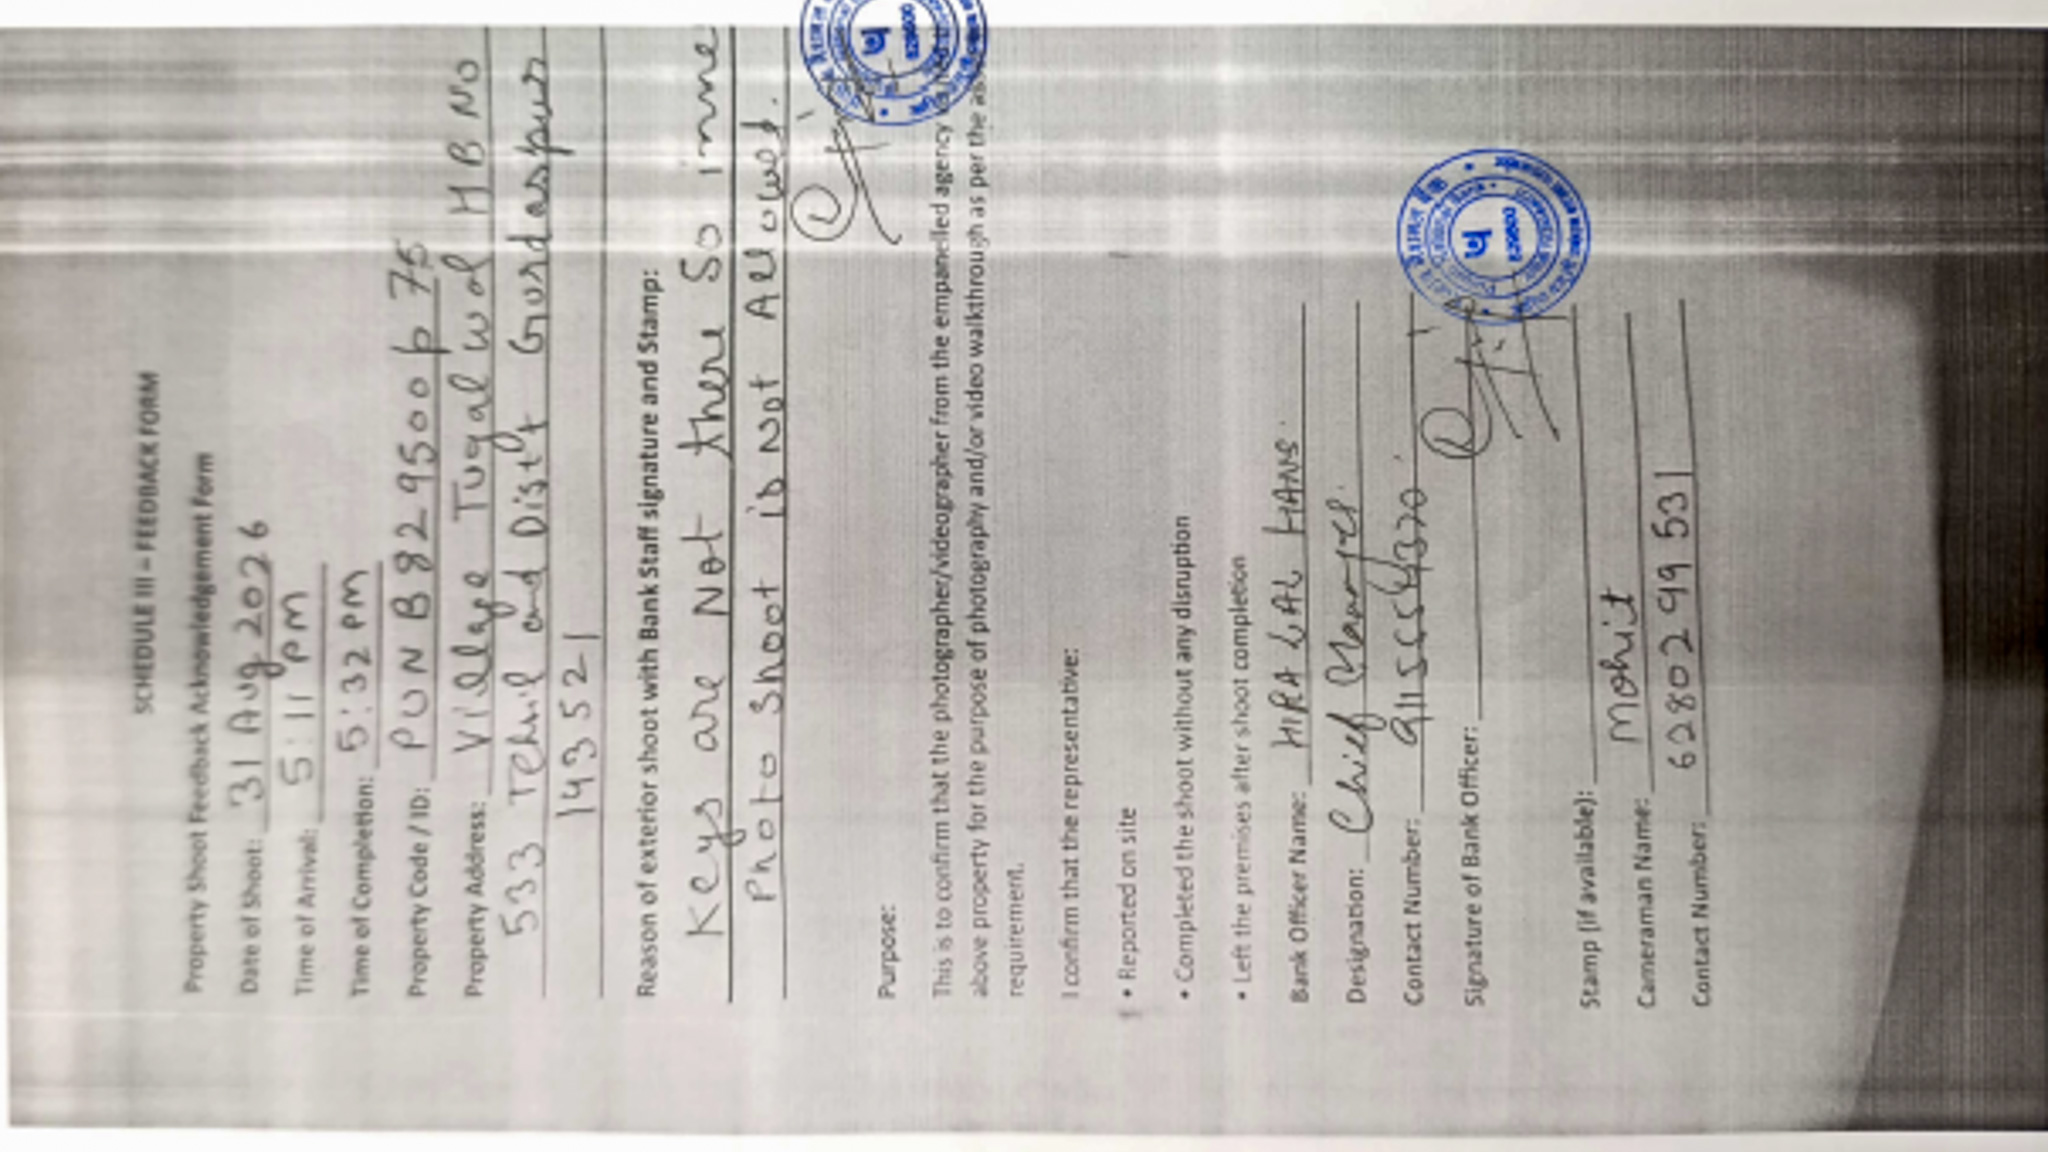 SCHEDULE III – FEEDBACK FORM
Property Shoot Feedback Acknowledgement Form
Date of Shoot: 31 Aug 2026
Time of Arrival: 5:11 PM
Time of Completion: 5:32 PM
Property Code / ID: PUNB829500p75
Property Address: Village Tugalwal HB No
533 Tehsil and Distt Gurdaspur
143521
Reason of exterior shoot with Bank Staff signature and Stamp:
Keys are Not there So inne
Photo Shoot is Not Allowed.
Purpose:
This is to confirm that the photographer/videographer from the empanelled agency
above property for the purpose of photography and/or video walkthrough as per the
requirement.
I confirm that the representative:
• Reported on site
• Completed the shoot without any disruption
• Left the premises after shoot completion
Bank Officer Name: HIRA LAL HANS
Designation: Chief Manager
Contact Number:
Signature of Bank Officer:
Stamp (if available):
Cameraman Name: Mohit
Contact Number: 6280299531